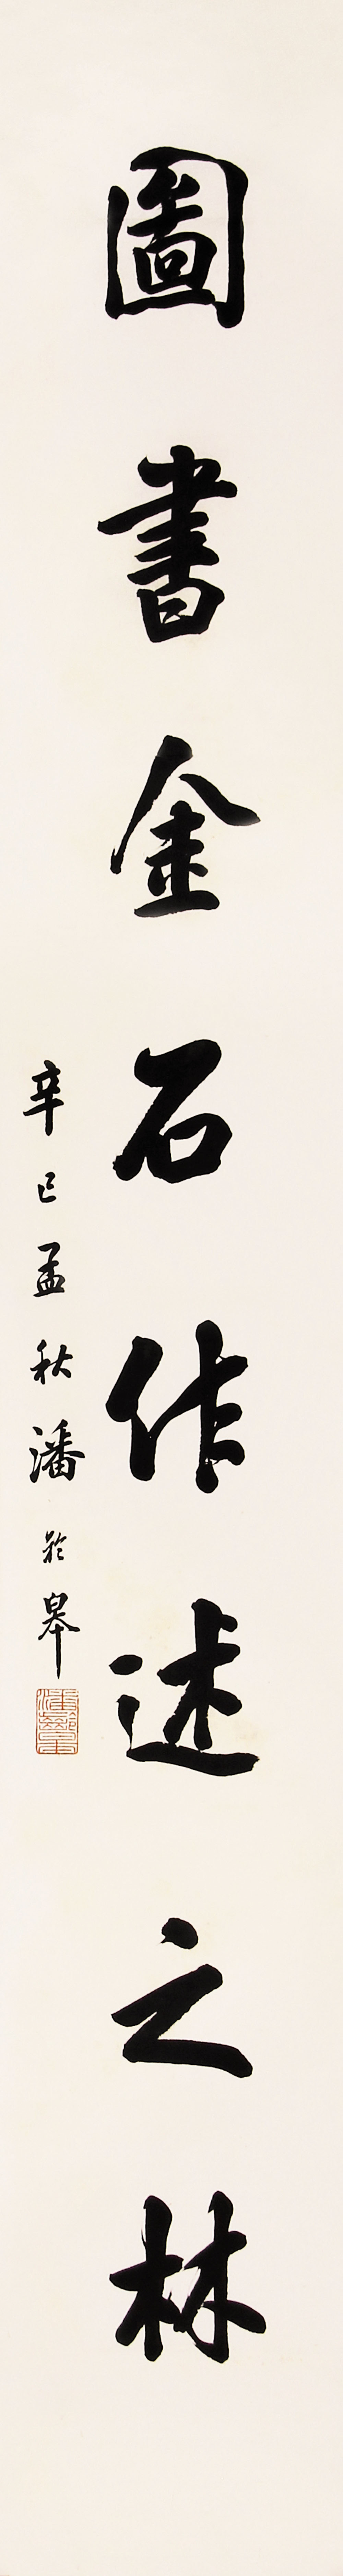 圖書金石作述之林
辛巳孟秋潘於皋